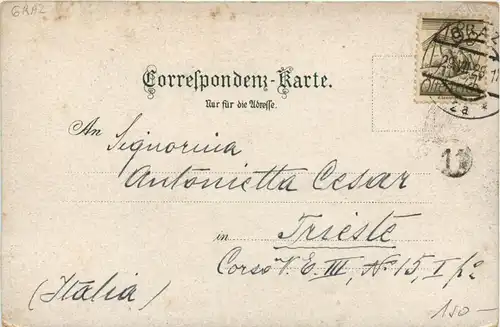 GRAZ
GRAZ
Correspondenz-Karte.
Nur für die Adresse.
An Signorina
Antonietta Cesar
in Trieste
Corso V. E. III, No 15, I po
(Italia)
2a
11
150-